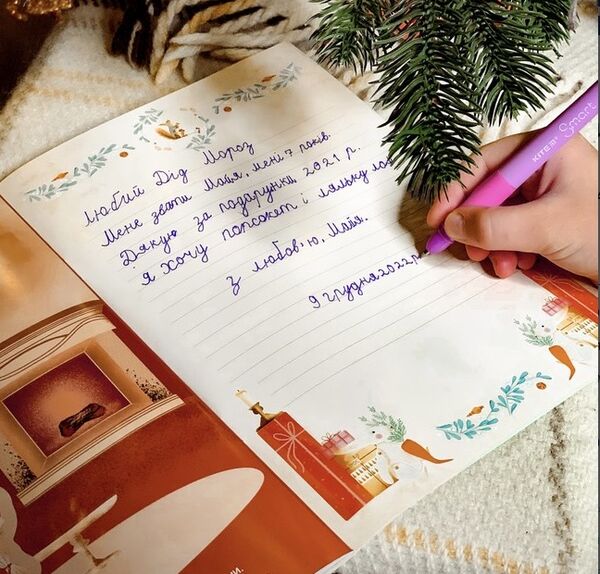 Любий Дід Мороз
Мене звати Майя, мені 7 років.
Дякую за подарунки 2021 р.
я хочу попсокет і ляльку
З любов'ю, Майя.
9 грудня 2022 р.
KITE
Smart